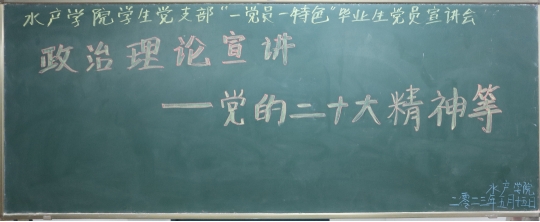 水产学院学生党支部“一党员一特色”毕业生党员宣讲会
政治理论宣讲
——党的二十大精神等
水产学院
二零二三年五月十五日